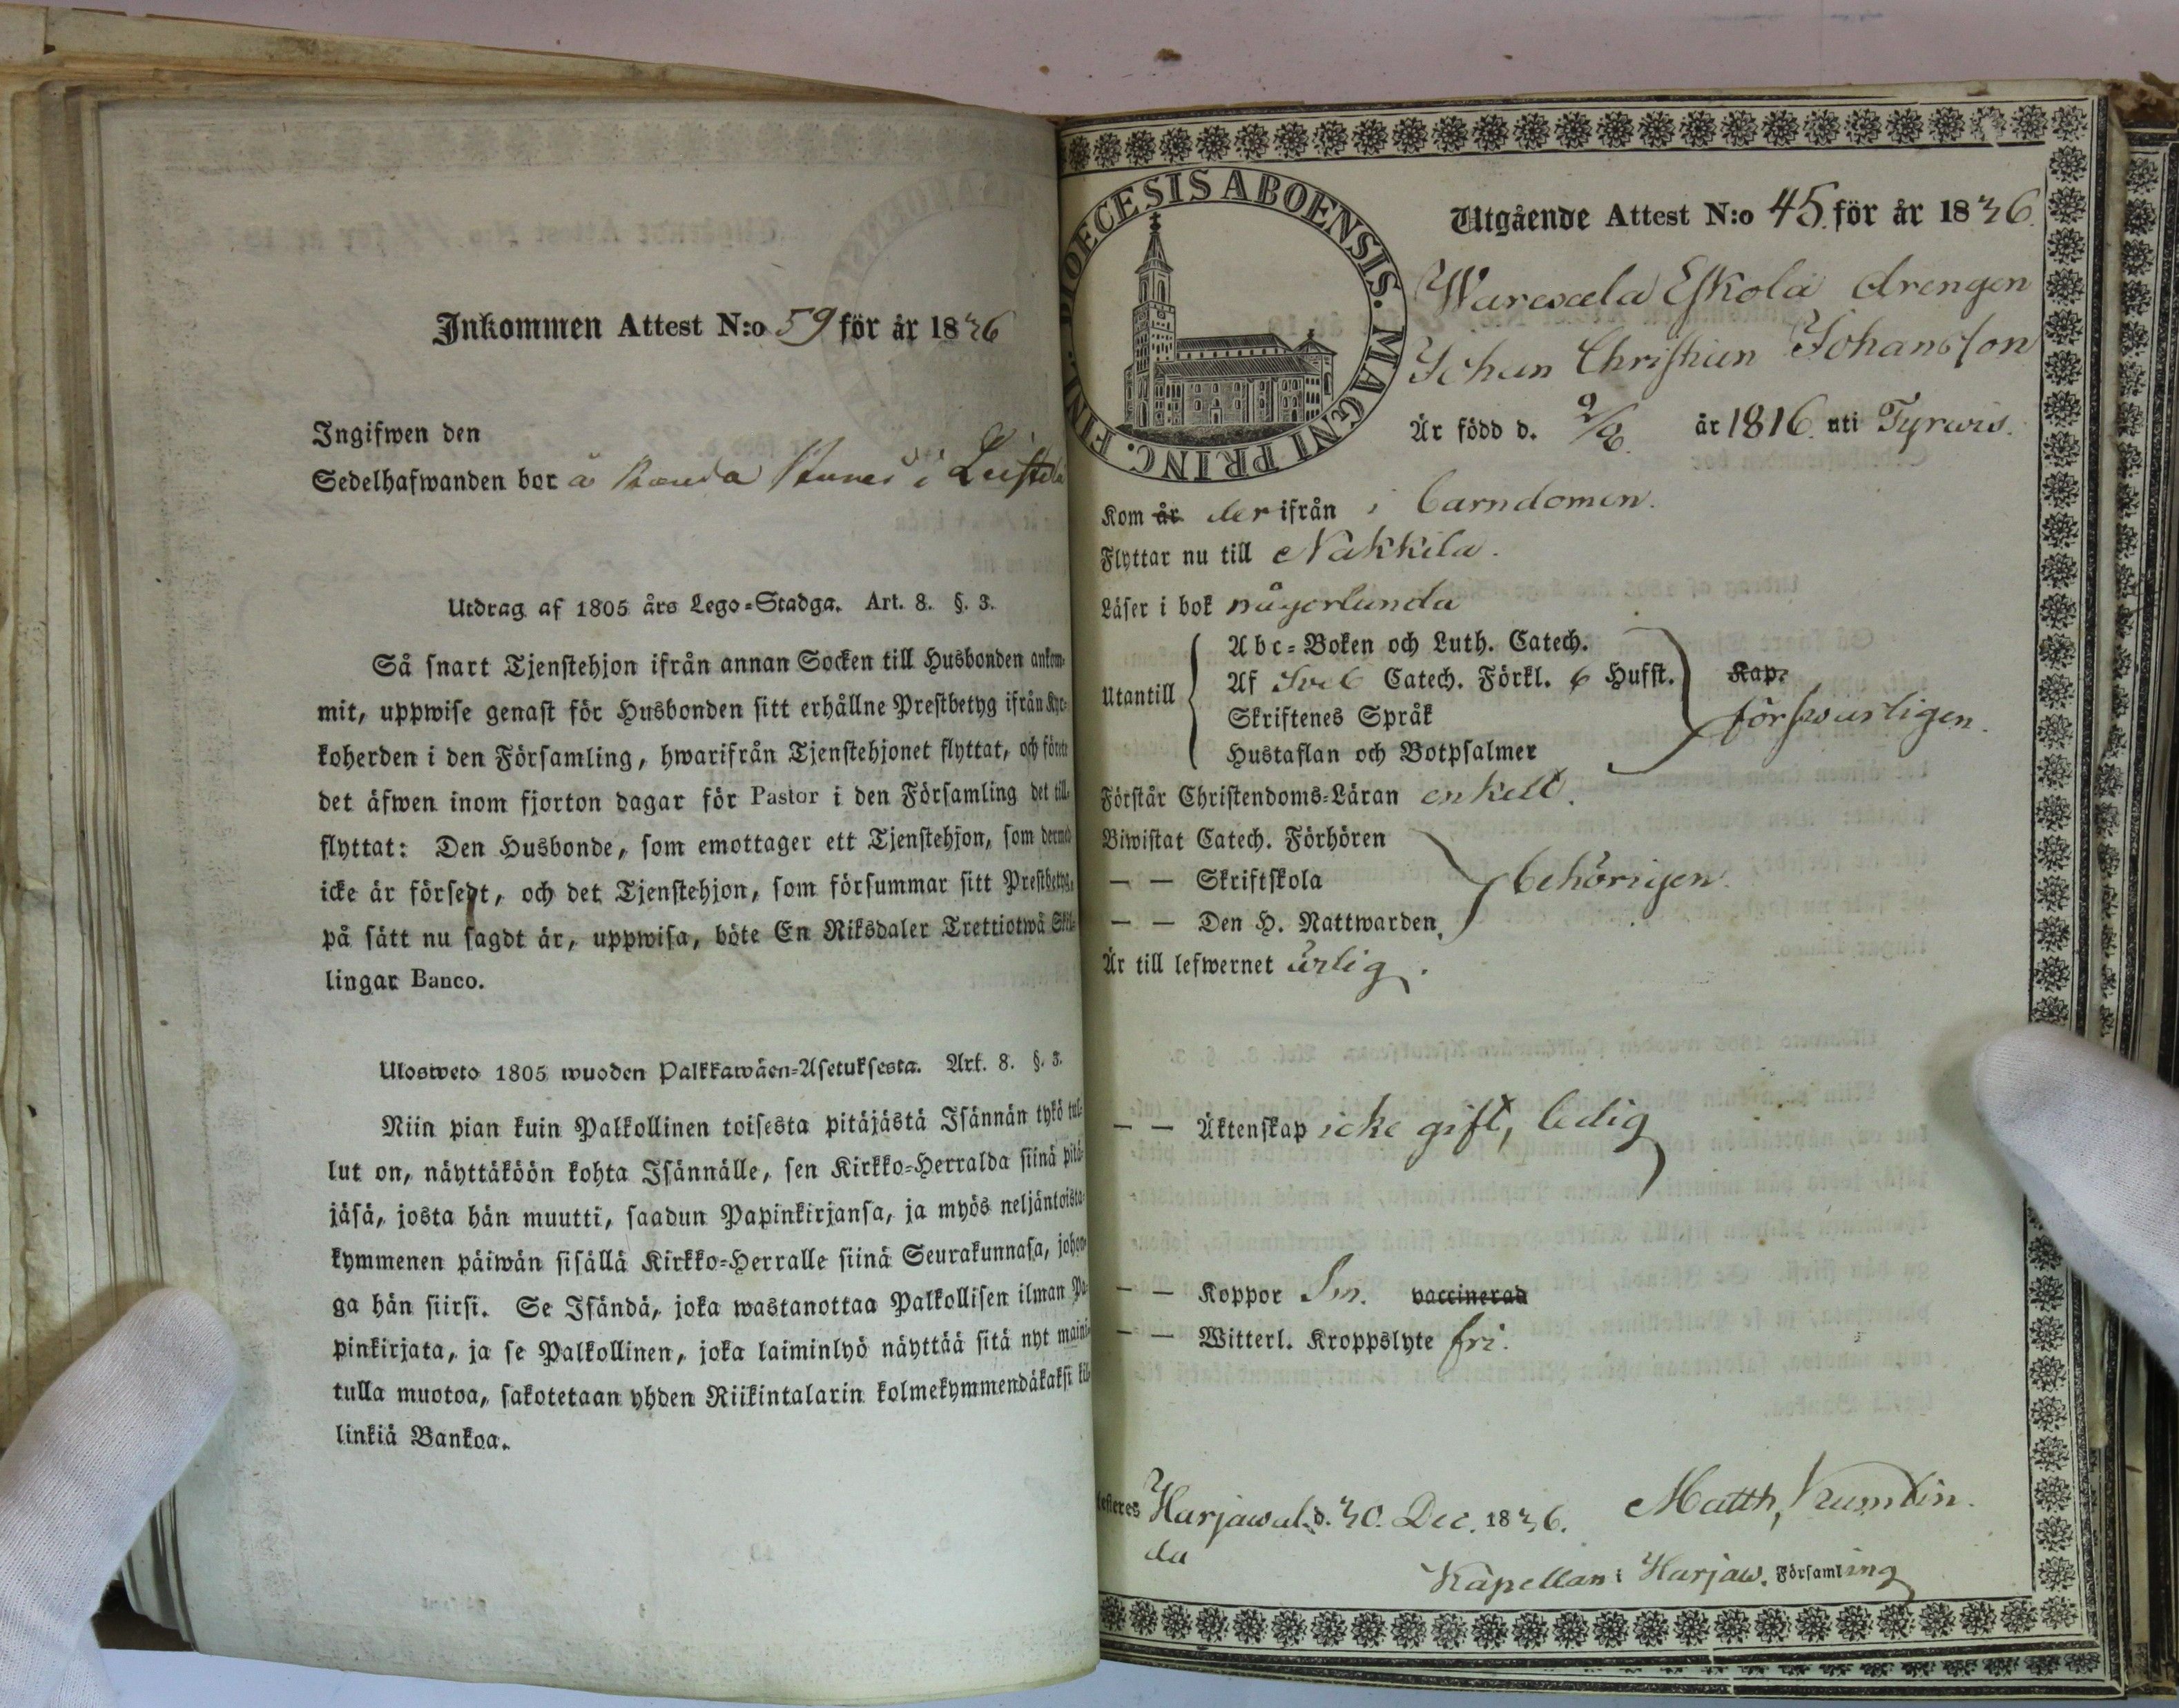 Inkommen Attest N:o 59 för år 1836
Ingifwen den
Sedelhafwanden bor å i Leistilä
Utdrag af 1805 års Lego=Stadga. Art. 8. §. 3.
Så snart Tjenstehjon ifrån annan Socken till Husbonden ankom-
mit, uppwise genast för Husbonden sitt erhållne Prestbetyg ifrån Kyr-
koherden i den Församling, hwarifrån Tjenstehjonet flyttat, och förete
det äfwen inom fjorton dagar för Pastor i den Församling det till-
flyttat: Den Husbonde, som emottager ett Tjenstehjon, som dermed
icke är försedt, och det Tjenstehjon, som försummar sitt Prestbetyg,
på sätt nu sagdt är, uppwisa, böte En Riksdaler Trettiotwå Skil-
lingar Banco.
Ulosweto 1805 wuoden Palkkawäen=Asetuksesta. Art. 8. §. 3.
Niin pian kuin Palkollinen toisesta pitäjästä Isännän tykö tul-
lut on, näyttäköön kohta Isännälle, sen Kirkko=Herralda siinä pitä-
jäsä, josta hän muutti, saadun Papinkirjansa, ja myös neljäntoista-
kymmenen päiwän sisällä Kirkko=Herralle siinä Seurakunnasa, johon-
ga hän siirsi. Se Isändä, joka wastanottaa Palkollisen ilman Pa-
pinkirjata, ja se Palkollinen, joka laiminlyö näyttää sitä nyt maini-
tulla muotoa, sakotetaan yhden Riikintalarin kolmekymmendäkaksi kil-
linkiä Bankoa.
DIOECESIS ABOENSIS. MAGNI PRINC. FINL.
Utgående Attest N:o 45. för år 1836.
Eskola drengen
Johan Christian Johansson
Är född d. 2/6. år 1816. uti Tyrwis.
Kom år der ifrån i barndomen.
Flyttar nu till Nakkila.
Läser i bok någorlunda
Utantill
Abc=Boken och Luth. Catech.
Af Sveb Catech. Förkl. 6 Hufst. Kap.
Skriftenes Språk
försvarligen.
Hustaflan och Botpsalmer
Förstår Christendoms=Läran enkelt.
Biwistat Catech. Förhören
— — Skriftskola behörigen.
— — Den H. Nattwarden,
Är till lefwernet ärlig.
— — Äktenskap icke gift, ledig
— — Koppor vaccinerad
— — Witterl. Kroppslyte fri.
Harjawal- d. 30. Dec. 1836. Matth. Kumlin.
da
Kapellan i Harjaw. Församling